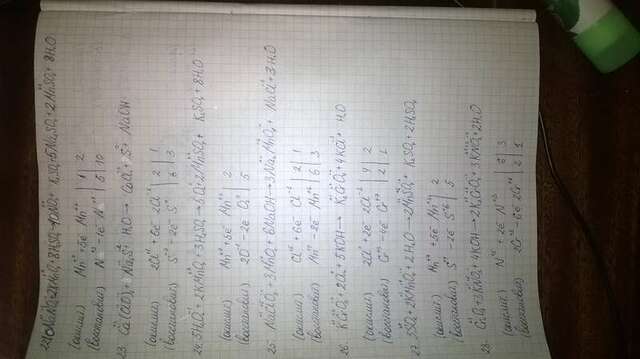 22. 10NaNO₂+2KMnO₄+8H₂SO₄→10NO₂+ K₂SO₄+5Na₂SO₄+2MnSO₄+8H₂O
(окислит) Mn⁺⁷+5e Mn⁺² | 1 | 2
(восстановил) N⁺³-1e N⁺⁴ | 5 | 10
23. Ca(ClO₃)₂+ Na₂S+ H₂O → CaCl₂+ S + NaOH
(окислит) 2Cl +6e 2Cl⁻ | 2 | 1
(восстановил) S⁻²-2e S⁰ | 6 | 3
24. 5H₂O₂+2KMnO₄+3H₂SO₄→5O₂+2MnSO₄+ K₂SO₄+8H₂O
(окислит) Mn⁺⁷+5e Mn⁺² | 2
(восстановил) 2O⁻-2e O₂⁰ | 5
25. NaClO₃+3MnO₂+6NaOH→3Na₂MnO₄+ NaCl+3H₂O
(окислит) Cl⁺⁵+6e Cl⁻ | 2 | 1
(восстановил) Mn⁺⁴-2e Mn⁺⁶ | 6 | 3
26. +2Cl₂+5KOH→ K₂CrO₄+4KCl+ H₂O
(окислит) 2Cl⁰+2e 2Cl⁻
(восстановил) -4e | 2 | 1
27. 5SO₂+2KMnO₄+2H₂O→2MnSO₄+ K₂SO₄+2H₂SO₄
(окислит) Mn⁺⁷+5e Mn⁺² | 2
(восстановил) S⁺⁴-2e S⁺⁶ | 5
28. Cr₂O₃+3KNO₃+4KOH→2K₂CrO₄+3KNO₂+2H₂O
(окислит) N⁺⁵+2e N⁺³ | 6 | 3
(восстановил) 2Cr⁺³-6e 2Cr⁺⁶ | 2 | 1